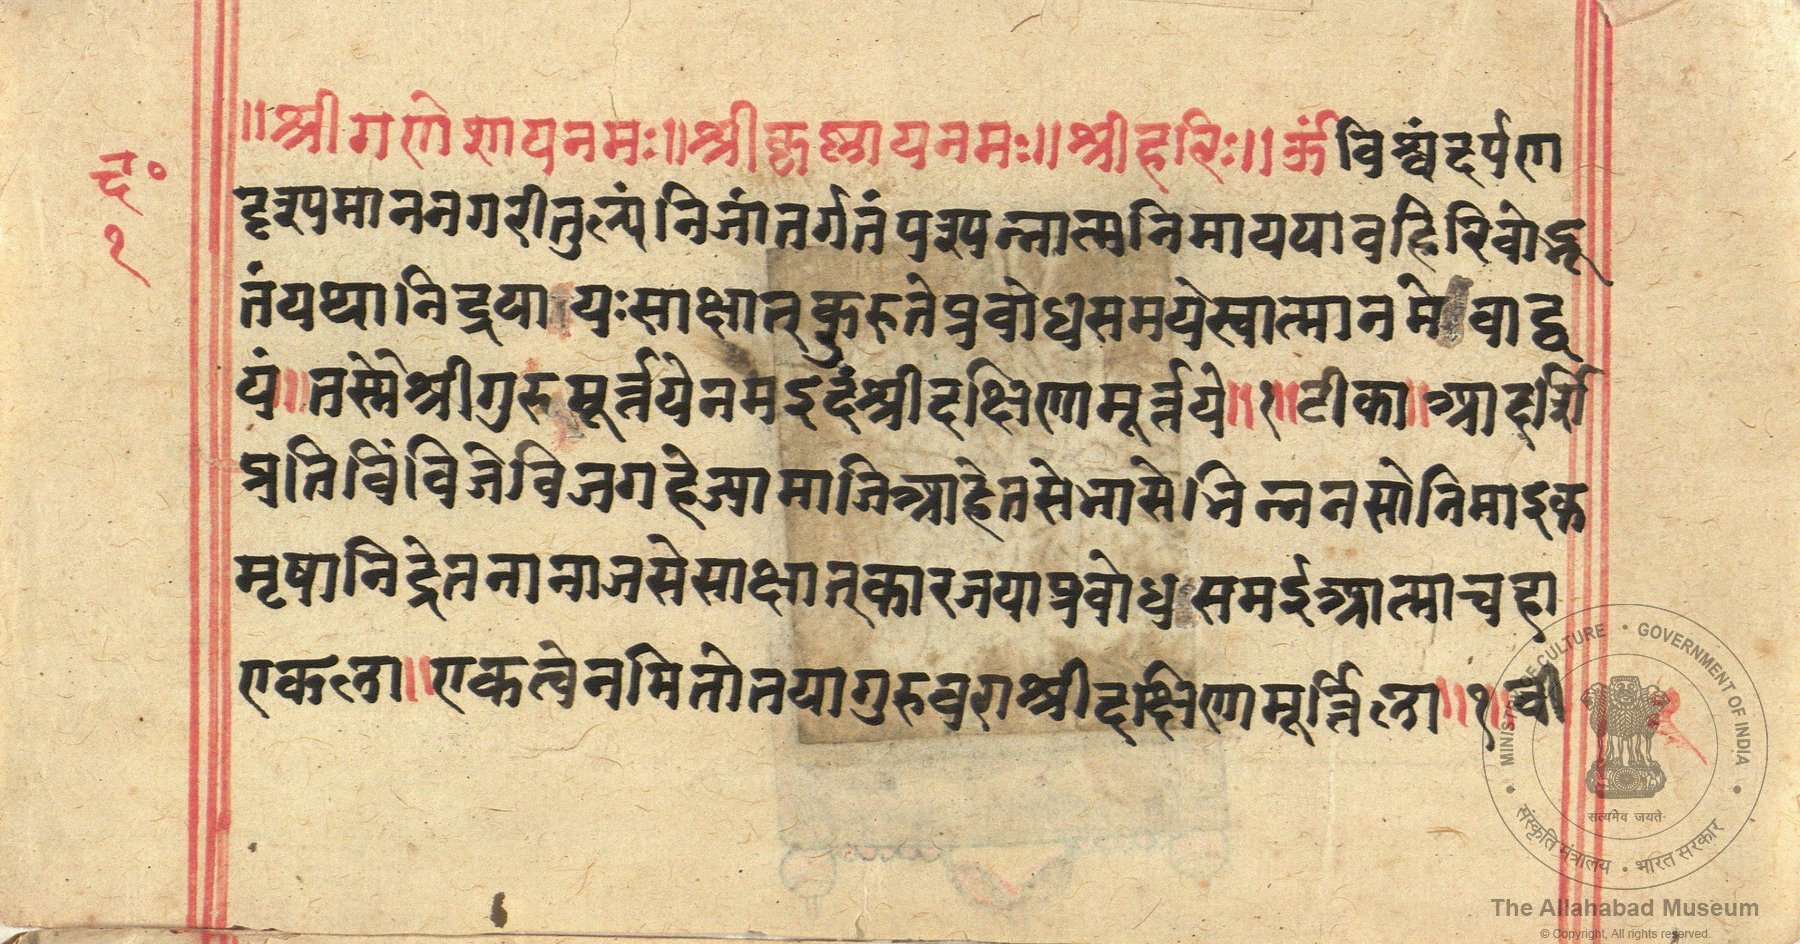 ॥श्रीगणेशायनमः॥श्रीकृष्णायनमः॥श्रीहरिः॥ॐविश्वंदर्पण
दं॰
१
दृश्यमाननगरीतुल्यंनिजांतर्गतंपश्यन्नात्मनिमाययावहिरिवोद्भू
तंयथानिद्रया यःसाक्षात्कुरुतेप्रवोधसमयेस्वात्मानमे वाद्व
यं॥तस्मैश्रीगुरुमूर्त्तयेनमइदंश्रीदक्षिणामूर्त्तये॥१॥टीका॥आदर्शि
प्रतिविंविजेविजगहेज्यामाजिआहेतसेभासेभिन्ननसोनिमाइक
मृषानिद्रेतनानाजसेसाक्षात्कारजयाप्रवोध समईआत्माचहा
एकला॥एकत्वेनमितोतयागुरुवराश्रीदक्षिणामूर्त्तिला॥१॥वी
MINISTRY OF CULTURE • GOVERNMENT OF INDIA
सत्यमेव जयते
संस्कृति मंत्रालय • भारत सरकार
The Allahabad Museum
© Copyright, All rights reserved.